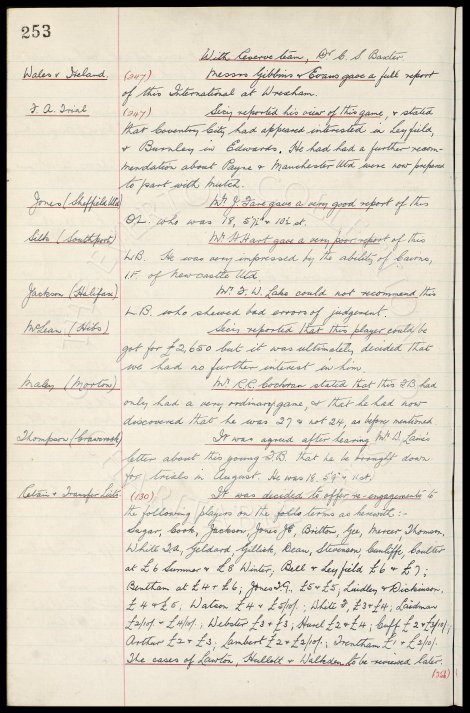 253
With Reserve team, Dr C. S. Baxter.
Wales v Ireland. (247) Messrs Gibbins & Evans gave a full report
of this International at Wrexham.
F. A. Trial (247) Secy reported his view of this game, & stated
that Coventry City had appeared interested in Leyfield,
& Burnley in Edwards. He had had a further recom-
mendation about Payne & Manchester Utd were now prepared
to part with Mutch.
Jones (Sheffield Utd) Mr J. Fare gave a very good report of this
O.L. who was 18, 5'7½" & 10½ st.
Silk (Southport) Mr H Hart gave a very poor report of this
L.B. He was very impressed by the ability of Cairns,
I.F. of Newcastle Utd
Jackson (Halifax) Mr F. W. Lake could not recommend this
L.B. who shewed bad errors of judgement.
McLean (Hibs) Secy reported that this player could be
got for £2,650 but it was ultimately decided that
we had no further interest in him.
Maley (Morton) Mr R.C. Cochran stated that this FB had
only had a very ordinary game, & that he had now
discovered that he was 27 & not 24, as before mentioned.
Thompson (Crawcrook) It was agreed after hearing Mr D. Lane's
letter about this young F.B. that he be brought down
for trials in August. He was 18. 5'9" & 11 st.
Retain & Transfer Lists (130) It was decided to offer re-engagements to
the following players on the folls terms as herewith:-
Sagar, Cook, Jackson, Jones JE, Britton, Gee, Mercer, Thomson,
White T.A, Geldard, Gillick, Dean, Stevenson, Cunliffe, Coulter
at £6 Summer & £8 Winter, Bell & Leyfield £6 & £7;
Bentham at £4 & £6; Jones T.G. £5 & £5; Lindley & Dickinson.
£4 & £5, Watson £4 & £5/10/-; White F, £3 & £4; Laidman
£2/10/- & £4/10/-; Webster £3 & £3; Hurel £2 & £4; Cuff £2 & £3/10/-;
Arthur £2 & £3, Lambert £2 & £2/10/-; Trentham £1 & £2/10/-
The cases of Lawton, Hullett & Walkden to be reviewed later.